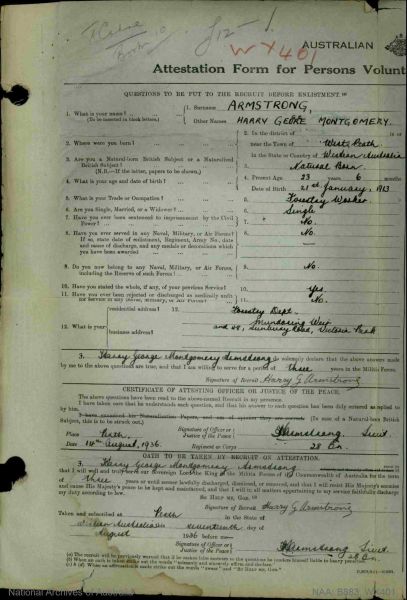 £12
WX401
AUSTRALIAN
Attestation Form for Persons Volunt
QUESTIONS TO BE PUT TO THE RECRUIT BEFORE ENLISTMENT.
1. What is your name?
(To be inserted in block letters.)
1. Surname ARMSTRONG,
Other Names HARRY GEORGE MONTGOMERY.
2. Where were you born?
2. In the district of
near the Town of West Perth
in the State or Country of Western Australia
3. Are you a Natural-born British Subject or a Naturalized British Subject?
(N.B.—If the latter, papers to be shown.)
3. Natural Born
4. What is your age and date of birth?
4. Present Age 23 years 6 months
Date of Birth 21st January, 1913
5. What is your Trade or Occupation?
5. Forestry Worker
6. Are you Single, Married, or a Widower?
6. Single
7. Have you ever been sentenced to imprisonment by the Civil Power?
7. No.
8. Have you ever served in any Naval, Military, or Air Forces?
If so, state date of enlistment, Regiment, Army No., date and cause of discharge, and any medals or decorations which you have been awarded
8. No.
9. Do you now belong to any Naval, Military, or Air Forces, including the Reserve of such Forces?
9. No.
10. Have you stated the whole, if any, of your previous Service?
10. Yes.
11. Have you ever been rejected or discharged as medically unfit for service in any Navy, Military, or Air Force?
11. No.
12. What is your
residential address?
business address?
12. Forestry Dept.
Mundaring Weir
Road, Victoria Park
I, Harry George Montgomery Armstrong solemnly declare that the above answers made
by me to the above questions are true, and that I am willing to serve for a period of three years in the Militia Forces.
Signature of Recruit Harry G Armstrong
CERTIFICATE OF ATTESTING OFFICER OR JUSTICE OF THE PEACE.
The above questions have been read to the above-named Recruit in my presence.
I have taken care that he understands each question, and that his answer to each question has been duly entered as replied to by him.
I have examined his Naturalization Papers, and am of opinion that they are correct. (In the case of a Natural-born British Subject, this is to be struck out.)
Place Perth
Date August, 1936.
Signature of Officer or Justice of the Peace
Armstrong Lieut
28 Bn.
OATH TO BE TAKEN BY RECRUIT ON ATTESTATION.
I, Harry George Montgomery Armstrong
that I will well and truly serve our Sovereign Lord the King in the Militia Forces of the Commonwealth of Australia for the term
of three years or until sooner lawfully discharged, dismissed, or removed, and that I will resist His Majesty's enemies
and cause His Majesty's peace to be kept and maintained, and that I will in all matters appertaining to my service faithfully discharge
my duty according to law.
SO HELP ME, GOD.
Signature of Recruit Harry G Armstrong
Taken and subscribed at Perth in
Western Australia this seventeenth day of
August 1936 before me—
Signature of Officer or Justice of the Peace
Armstrong Lieut
28 Bn.
National Archives of Australia
NAA: B883, WX401